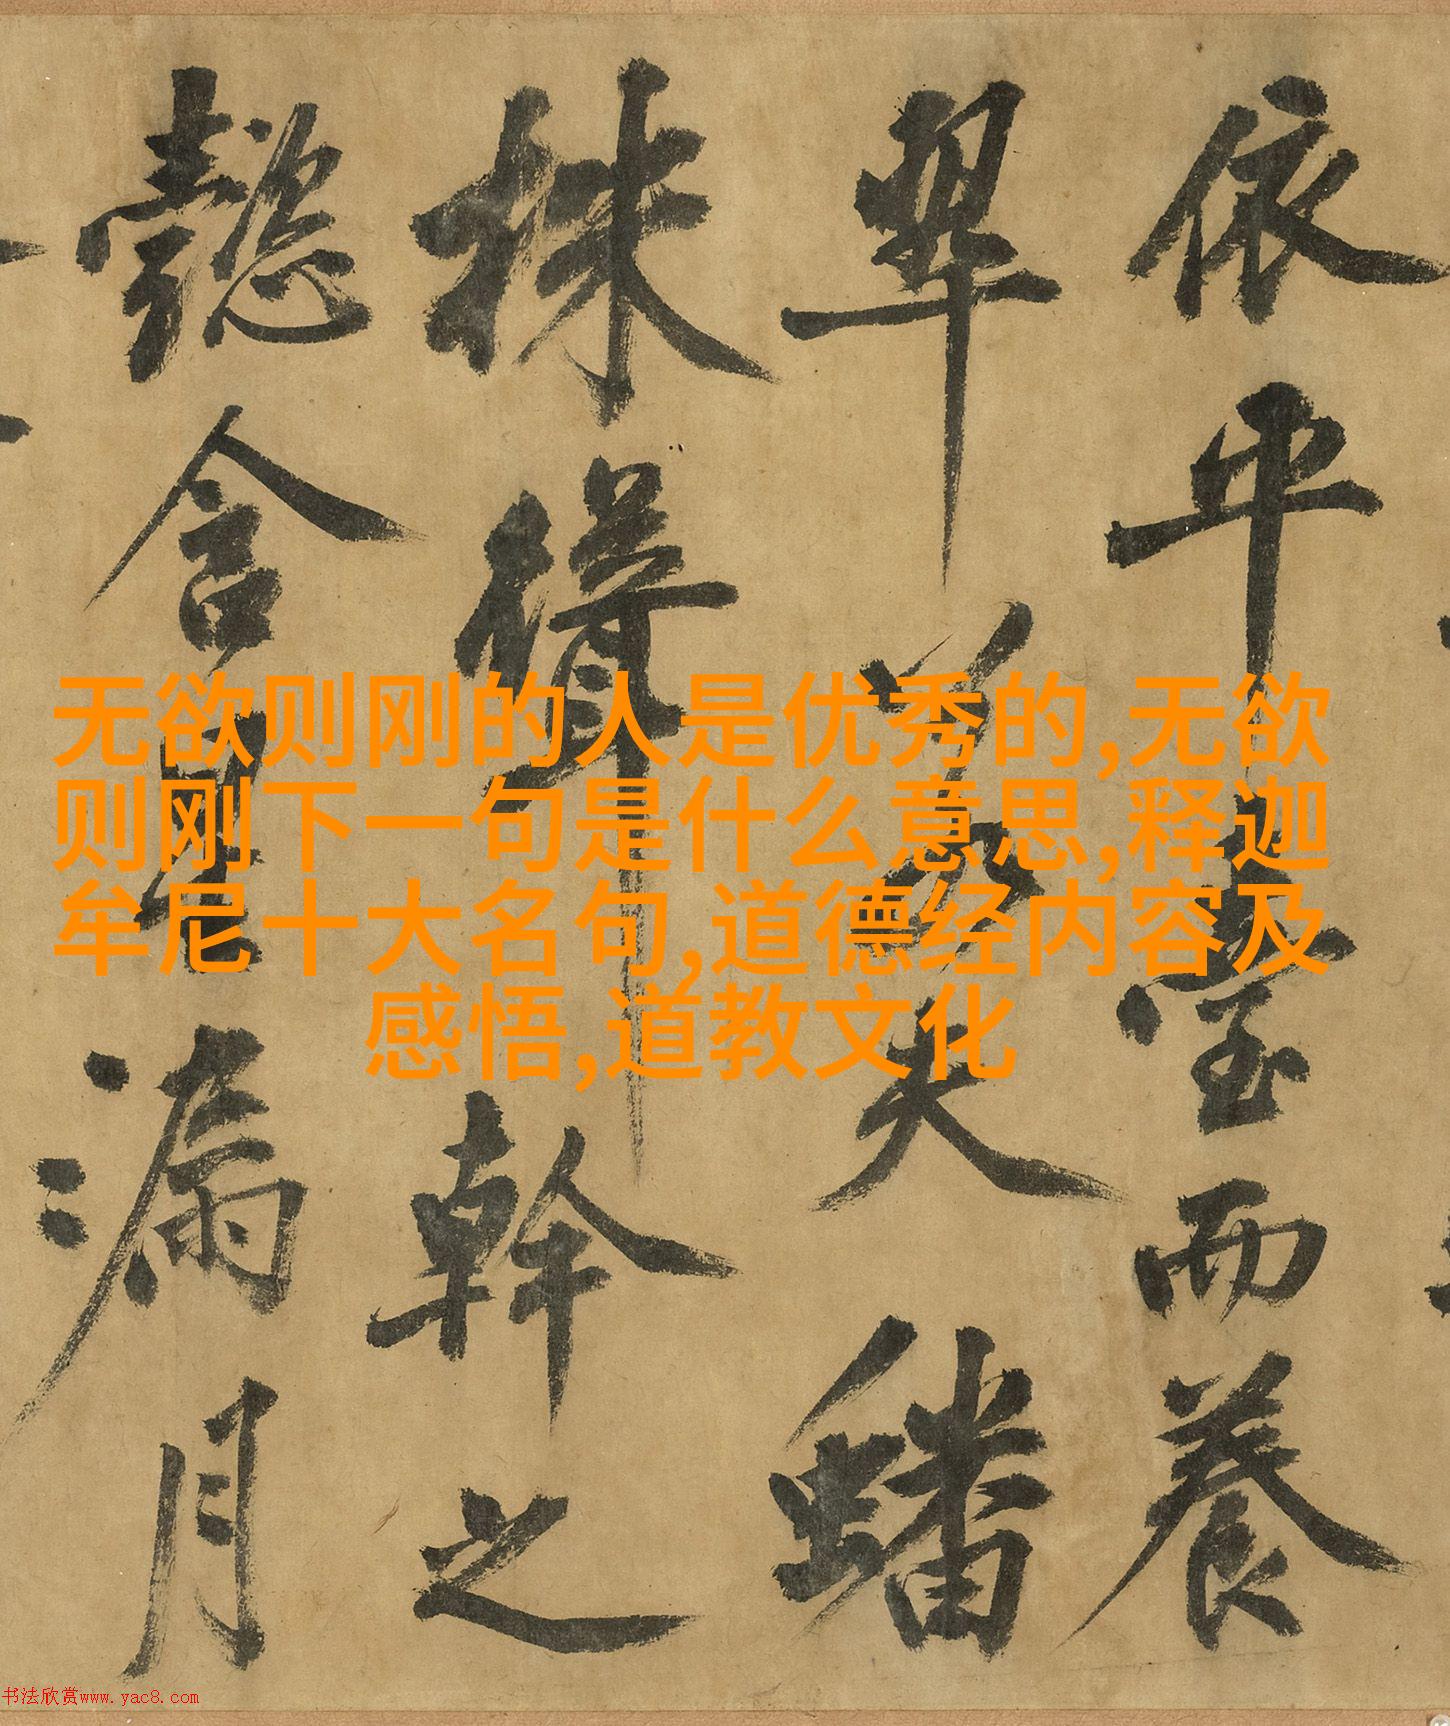 依平臺而養
翠若夫蟠
株聳幹之
懿含星漏月
无欲则刚的人是优秀的,无欲
则刚下一句是什么意思,释迦
牟尼十大名句,道德经内容及
感悟,道教文化
书法欣赏www.yac8.com